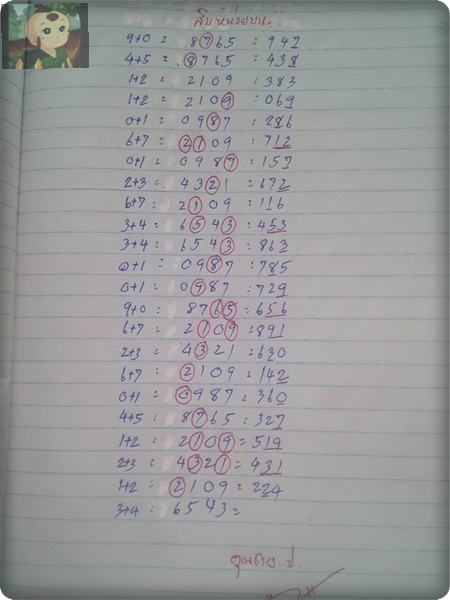 สิบหน่วยบน
9+0 = 8765 : 947
4+5 = 8765 : 438
1+2 = 2109 : 383
1+2 = 2109 : 069
0+1 = 0987 : 286
6+7 = 2109 : 712
0+1 = 0987 : 157
2+3 = 4321 : 672
6+7 = 2109 : 116
3+4 = 6543 : 453
3+4 = 6543 : 863
0+1 = 0987 : 785
0+1 = 0987 : 729
9+0 = 8765 = 656
6+7 = 2109 = 891
2+3 = 4321 : 630
6+7 = 2109 = 142
0+1 = 0987 = 360
4+5 = 8765 : 327
1+2 = 2109 = 519
2+3 = 4321 = 431
1+2 = 2109 = 224
3+4 = 6543 =